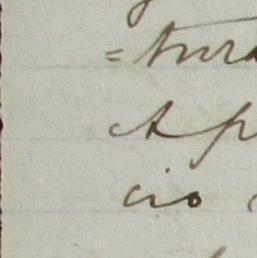 = tura
Ap
cio